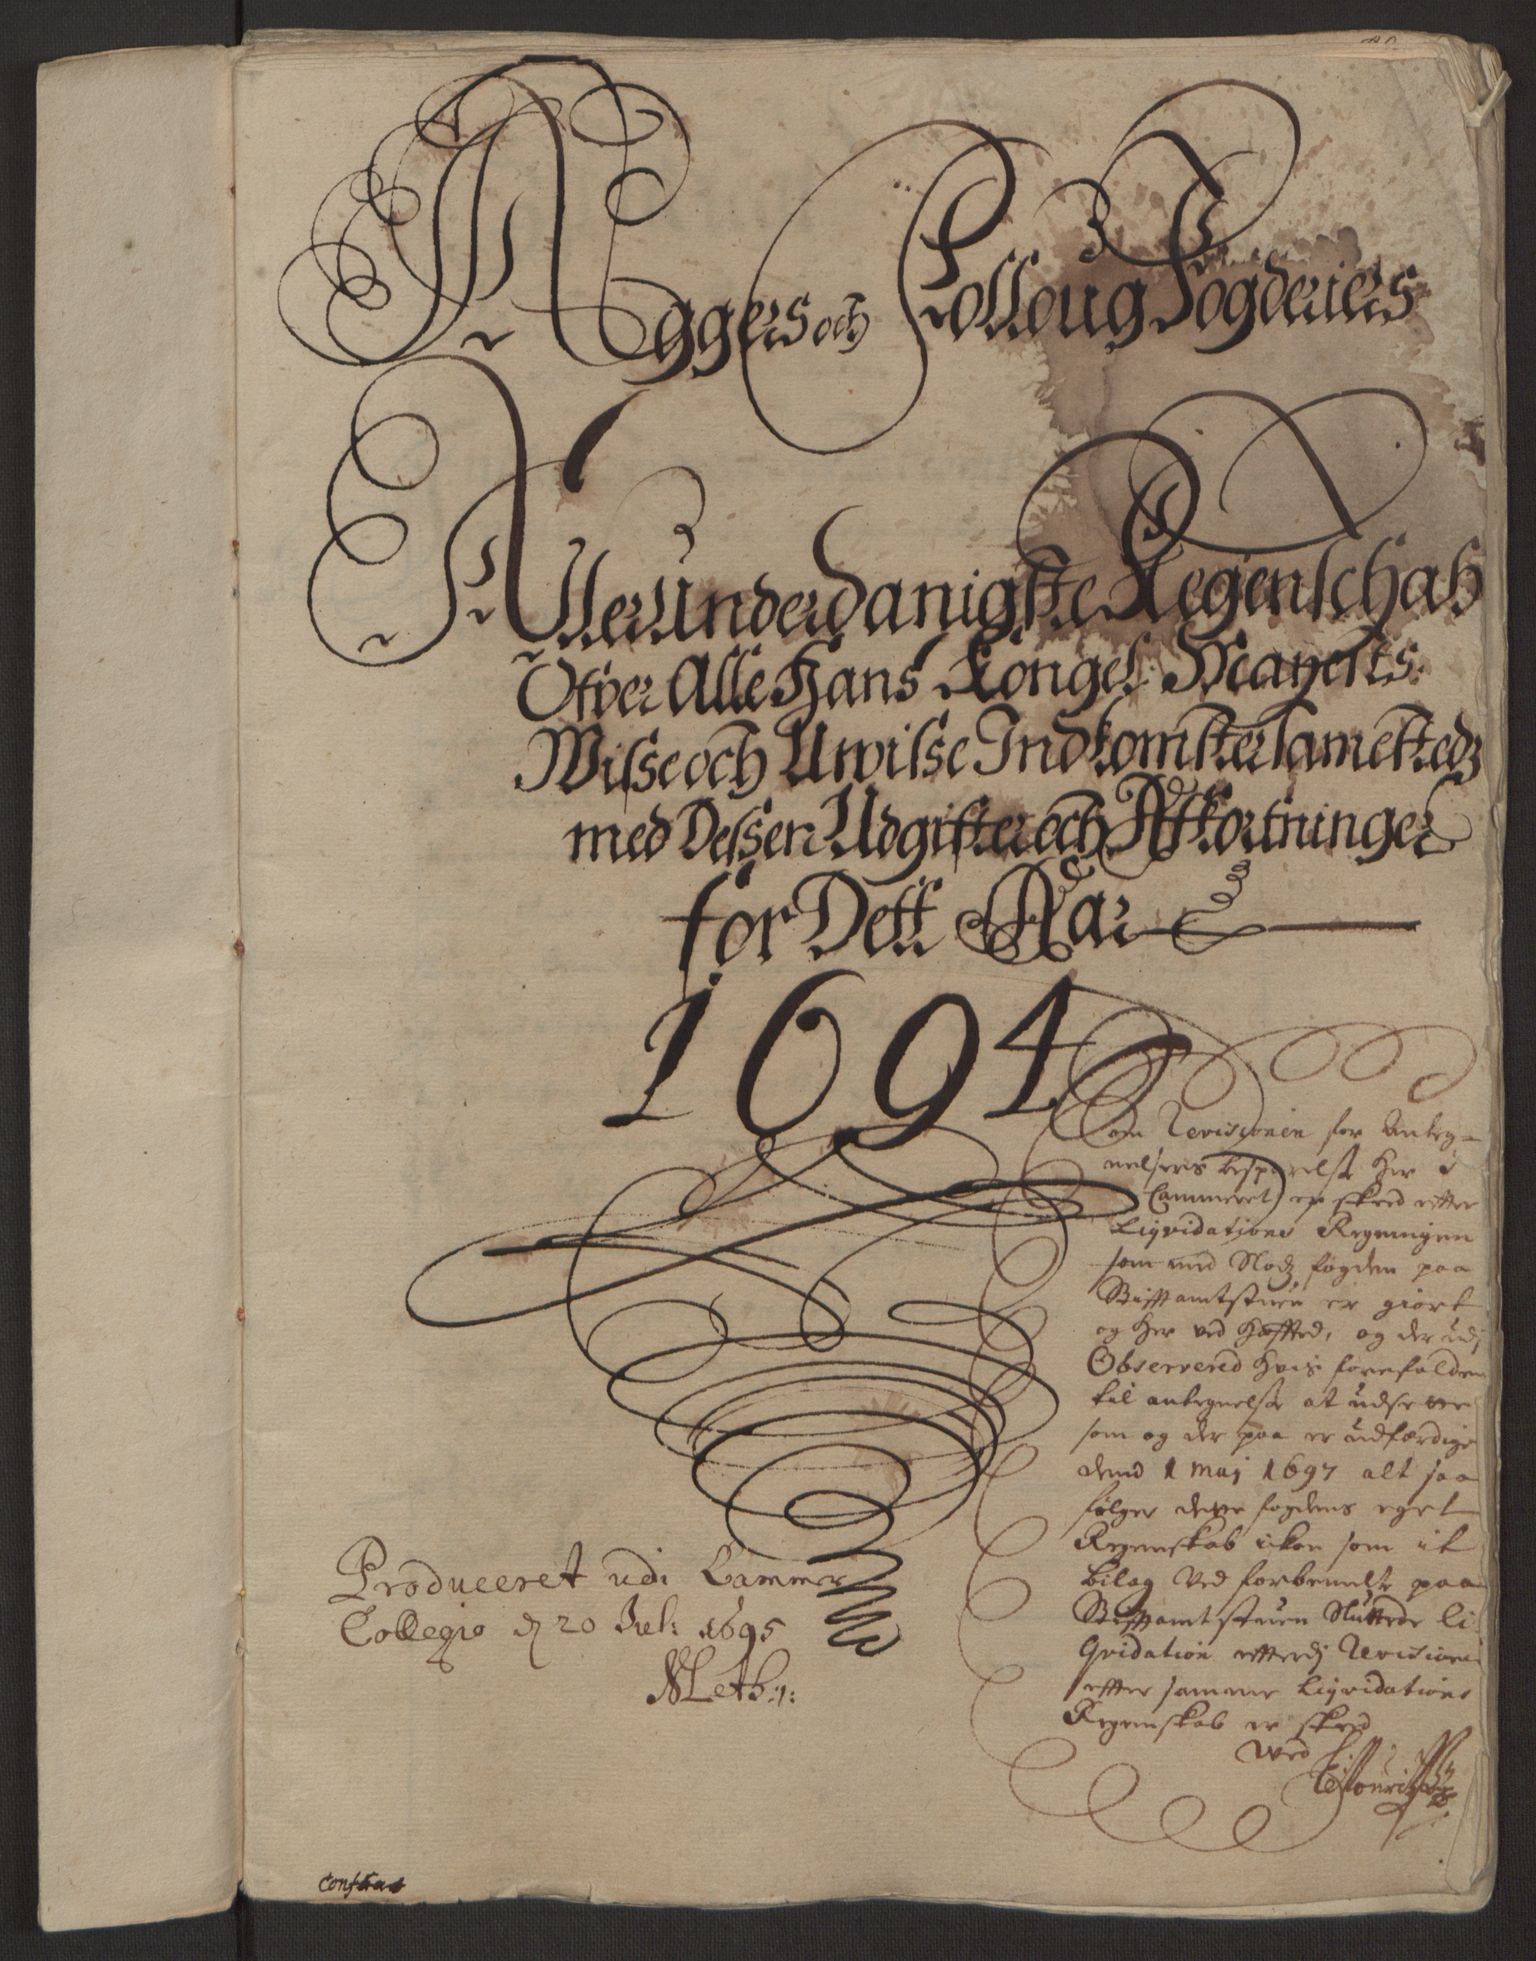 Aggers och Folloug Fogderiers
AllerUnderdanigste Regenschab
Ofver Alle Hans Kongel: Mayests:
Wisse och Uwisse Indkomster samestedz
med Dessen Udgifter och Afkortninger
for Dett Aar
1694
om Revisionen for Anteg-
nelsers besparelse her i
Cammeret er skeed efter
Liqvidations Regningen
som med Slodz fogden paa
Stifftamtstuen er giort
og her ved hæfted, og der udj
Observered hvis forefalden
til antegnelse at udsette
som og der paa er udferdiget
dend 1 Maj 1697 alt saa
følger dette fogdens eget
Regenskab ickon som it
bilag ved forbemelte paa
Stifftamtstuen Sluttede Li-
qvidation efterdj Revisionen
effter samme Liqvidations
Regenskab er skeed
ved
Produceret udi Cammer
Collegio d 20 Jul: 1695